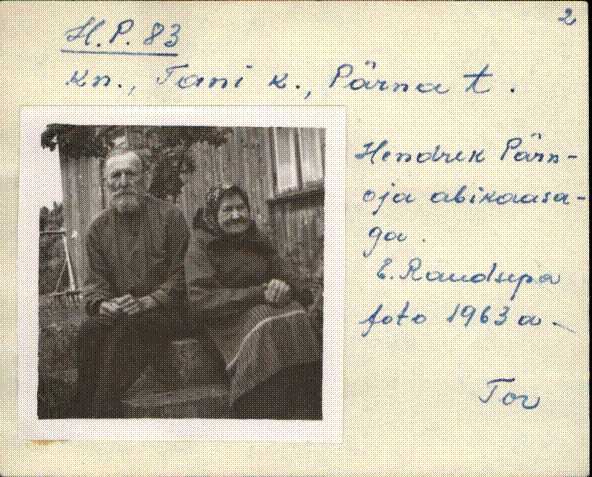 2
H.P. 83
kn., Tani k., Pärna t.
Hendrek Pärn-
oja abikaasa-
ga.
E. Raudsepa
foto 1963 a.
Tor